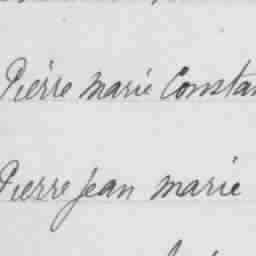 Pierre marie Constan
Pierre jean marie